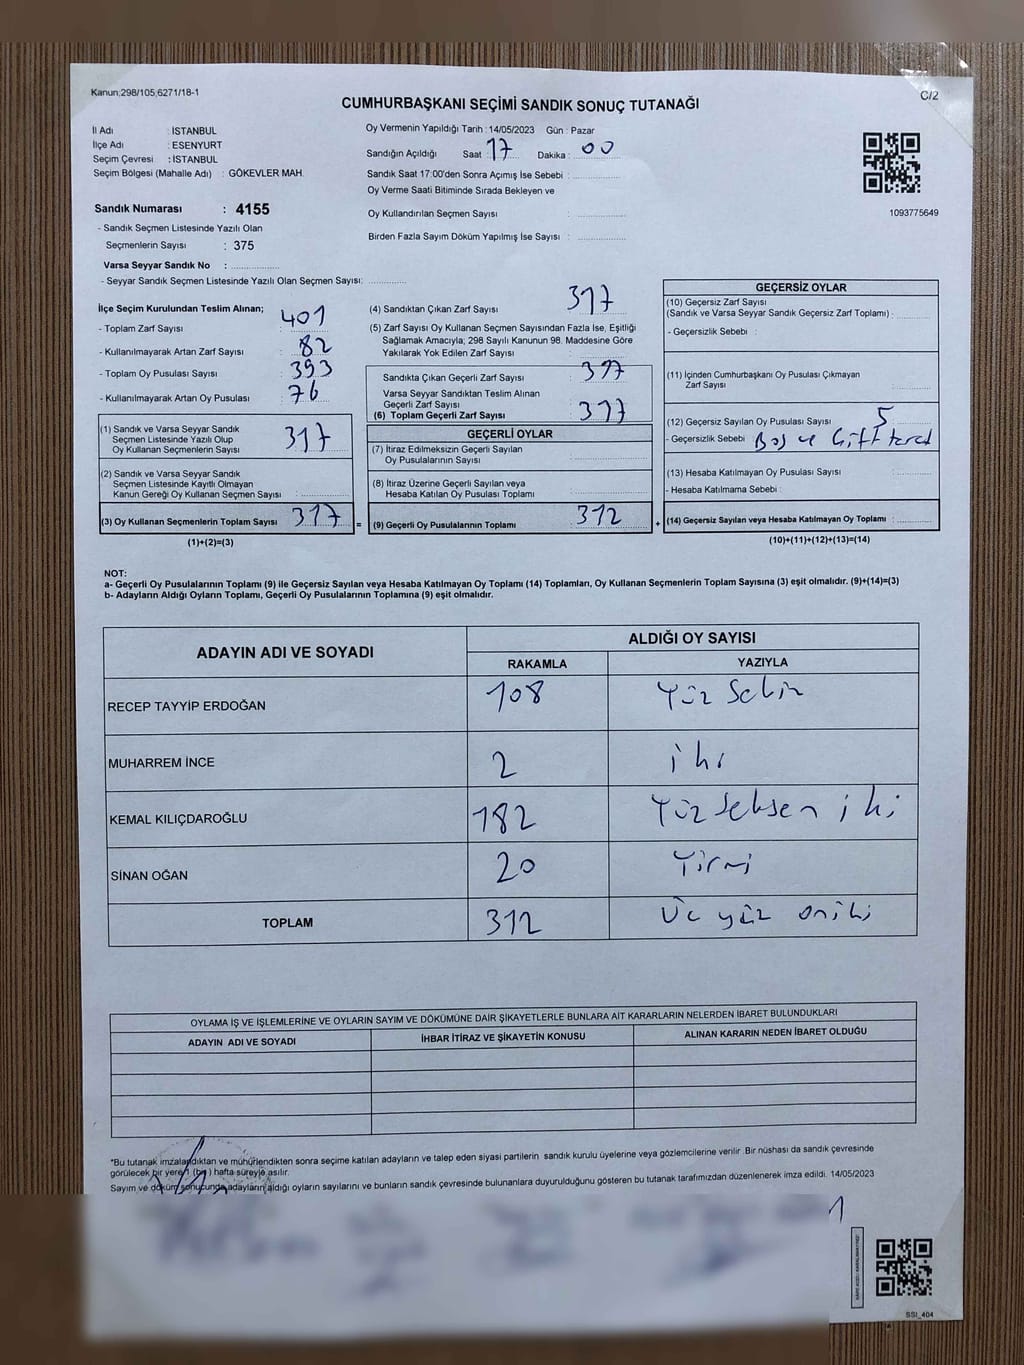 Kanun;298/105;6271/18-1
C/2
CUMHURBAŞKANI SEÇİMİ SANDIK SONUÇ TUTANAĞI
İl Adı : İSTANBUL
İlçe Adı : ESENYURT
Seçim Çevresi : İSTANBUL
Seçim Bölgesi (Mahalle Adı) : GÖKEVLER MAH.
Oy Vermenin Yapıldığı Tarih : 14/05/2023 Gün : Pazar
Sandığın Açıldığı Saat : 17 Dakika : 00
Sandık Saat 17:00'den Sonra Açımış İse Sebebi :
Oy Verme Saati Bitiminde Sırada Bekleyen ve
Oy Kullandırılan Seçmen Sayısı :
Birden Fazla Sayım Döküm Yapılmış İse Sayısı :
1093775649
Sandık Numarası : 4155
- Sandık Seçmen Listesinde Yazılı Olan
Seçmenlerin Sayısı : 375
Varsa Seyyar Sandık No :
- Seyyar Sandık Seçmen Listesinde Yazılı Olan Seçmen Sayısı:
İlçe Seçim Kurulundan Teslim Alınan;
- Toplam Zarf Sayısı : 401
- Kullanılmayarak Artan Zarf Sayısı : 82
- Toplam Oy Pusulası Sayısı : 393
- Kullanılmayarak Artan Oy Pusulası : 76
(1) Sandık ve Varsa Seyyar Sandık
Seçmen Listesinde Yazılı Olup
Oy Kullanan Seçmenlerin Sayısı : 317
(2) Sandık ve Varsa Seyyar Sandık
Seçmen Listesinde Kayıtlı Olmayan
Kanun Gereği Oy Kullanan Seçmen Sayısı :
(3) Oy Kullanan Seçmenlerin Toplam Sayısı : 317 =
(1)+(2)=(3)
(4) Sandıktan Çıkan Zarf Sayısı : 317
(5) Zarf Sayısı Oy Kullanan Seçmen Sayısından Fazla İse, Eşitliği
Sağlamak Amacıyla; 298 Sayılı Kanunun 98. Maddesine Göre
Yakılarak Yok Edilen Zarf Sayısı :
Sandıkta Çıkan Geçerli Zarf Sayısı : 317
Varsa Seyyar Sandıktan Teslim Alınan
Geçerli Zarf Sayısı :
(6) Toplam Geçerli Zarf Sayısı : 317
GEÇERLİ OYLAR
(7) İtiraz Edilmeksizin Geçerli Sayılan
Oy Pusulalarının Sayısı :
(8) İtiraz Üzerine Geçerli Sayılan veya
Hesaba Katılan Oy Pusulası Toplamı :
(9) Geçerli Oy Pusulalarının Toplamı : 312 +
GEÇERSİZ OYLAR
(10) Geçersiz Zarf Sayısı
(Sandık ve Varsa Seyyar Sandık Geçersiz Zarf Toplamı) :
- Geçersizlik Sebebi :
(11) İçinden Cumhurbaşkanı Oy Pusulası Çıkmayan
Zarf Sayısı :
(12) Geçersiz Sayılan Oy Pusulası Sayısı : 5
- Geçersizlik Sebebi : Boş ve Çift terct
(13) Hesaba Katılmayan Oy Pusulası Sayısı :
- Hesaba Katılmama Sebebi :
(14) Geçersiz Sayılan veya Hesaba Katılmayan Oy Toplamı :
(10)+(11)+(12)+(13)=(14)
NOT:
a- Geçerli Oy Pusulalarının Toplamı (9) ile Geçersiz Sayılan veya Hesaba Katılmayan Oy Toplamı (14) Toplamları, Oy Kullanan Seçmenlerin Toplam Sayısına (3) eşit olmalıdır. (9)+(14)=(3)
b- Adayların Aldığı Oyların Toplamı, Geçerli Oy Pusulalarının Toplamına (9) eşit olmalıdır.
ADAYIN ADI VE SOYADI ALDIĞI OY SAYISI
RAKAMLA YAZIYLA
RECEP TAYYİP ERDOĞAN 108 Yüz Sekiz
MUHARREM İNCE 2 iki
KEMAL KILIÇDAROĞLU 182 Yüz Seksen iki
SİNAN OĞAN 20 Yirmi
TOPLAM 312 Üç yüz oniki
OYLAMA İŞ VE İŞLEMLERİNE VE OYLARIN SAYIM VE DÖKÜMÜNE DAİR ŞİKAYETLERLE BUNLARA AİT KARARLARIN NELERDEN İBARET BULUNDUKLARI
ADAYIN ADI VE SOYADI İHBAR İTİRAZ VE ŞİKAYETİN KONUSU ALINAN KARARIN NEDEN İBARET OLDUĞU
*Bu tutanak imzalandıktan ve mühürlendikten sonra seçime katılan adayların ve talep eden siyasi partilerin sandık kurulu üyelerine veya gözlemcilerine verilir .Bir nüshası da sandık çevresinde
görülecek bir yere 1 (bir) hafta süreyle asılır.
Sayım ve döküm sonucunda adayların aldığı oyların sayılarını ve bunların sandık çevresinde bulunanlara duyurulduğunu gösteren bu tutanak tarafımızdan düzenlenerek imza edildi. 14/05/2023
SSI_404